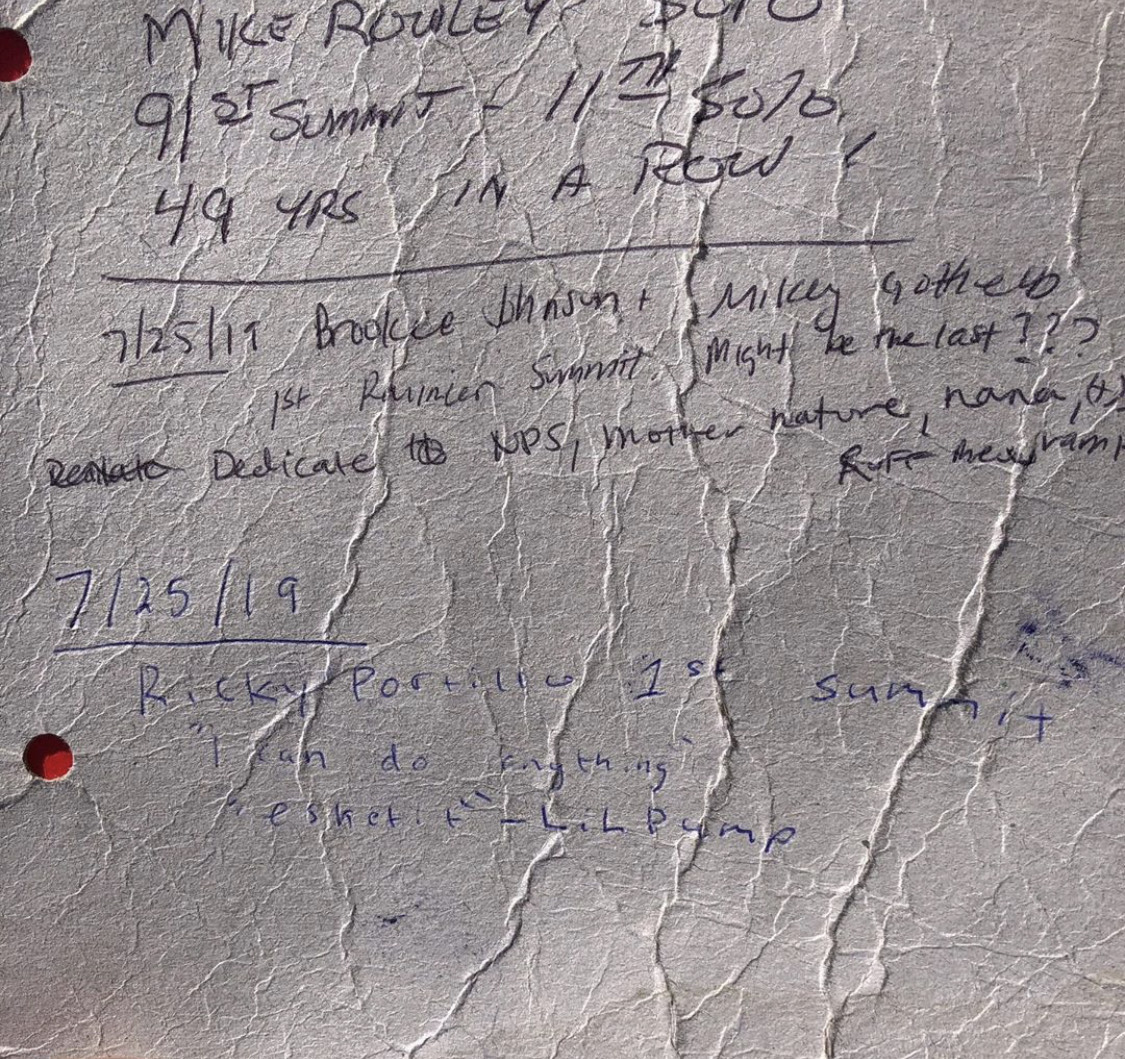 MIKE ROULEY SOLO
91ST SUMMIT - 11TH SOLO,
49 YRS IN A ROW!
7/25/19 Brookee Johnson + Mikey Gottlieb
1st Rainier Summit. Might be the last???
Dedicate to NPS, mother nature, nana,
RUFF
7/25/19
Ricky Portillo 1st summit
"I can do anything"
"esketit" - Lil Pump